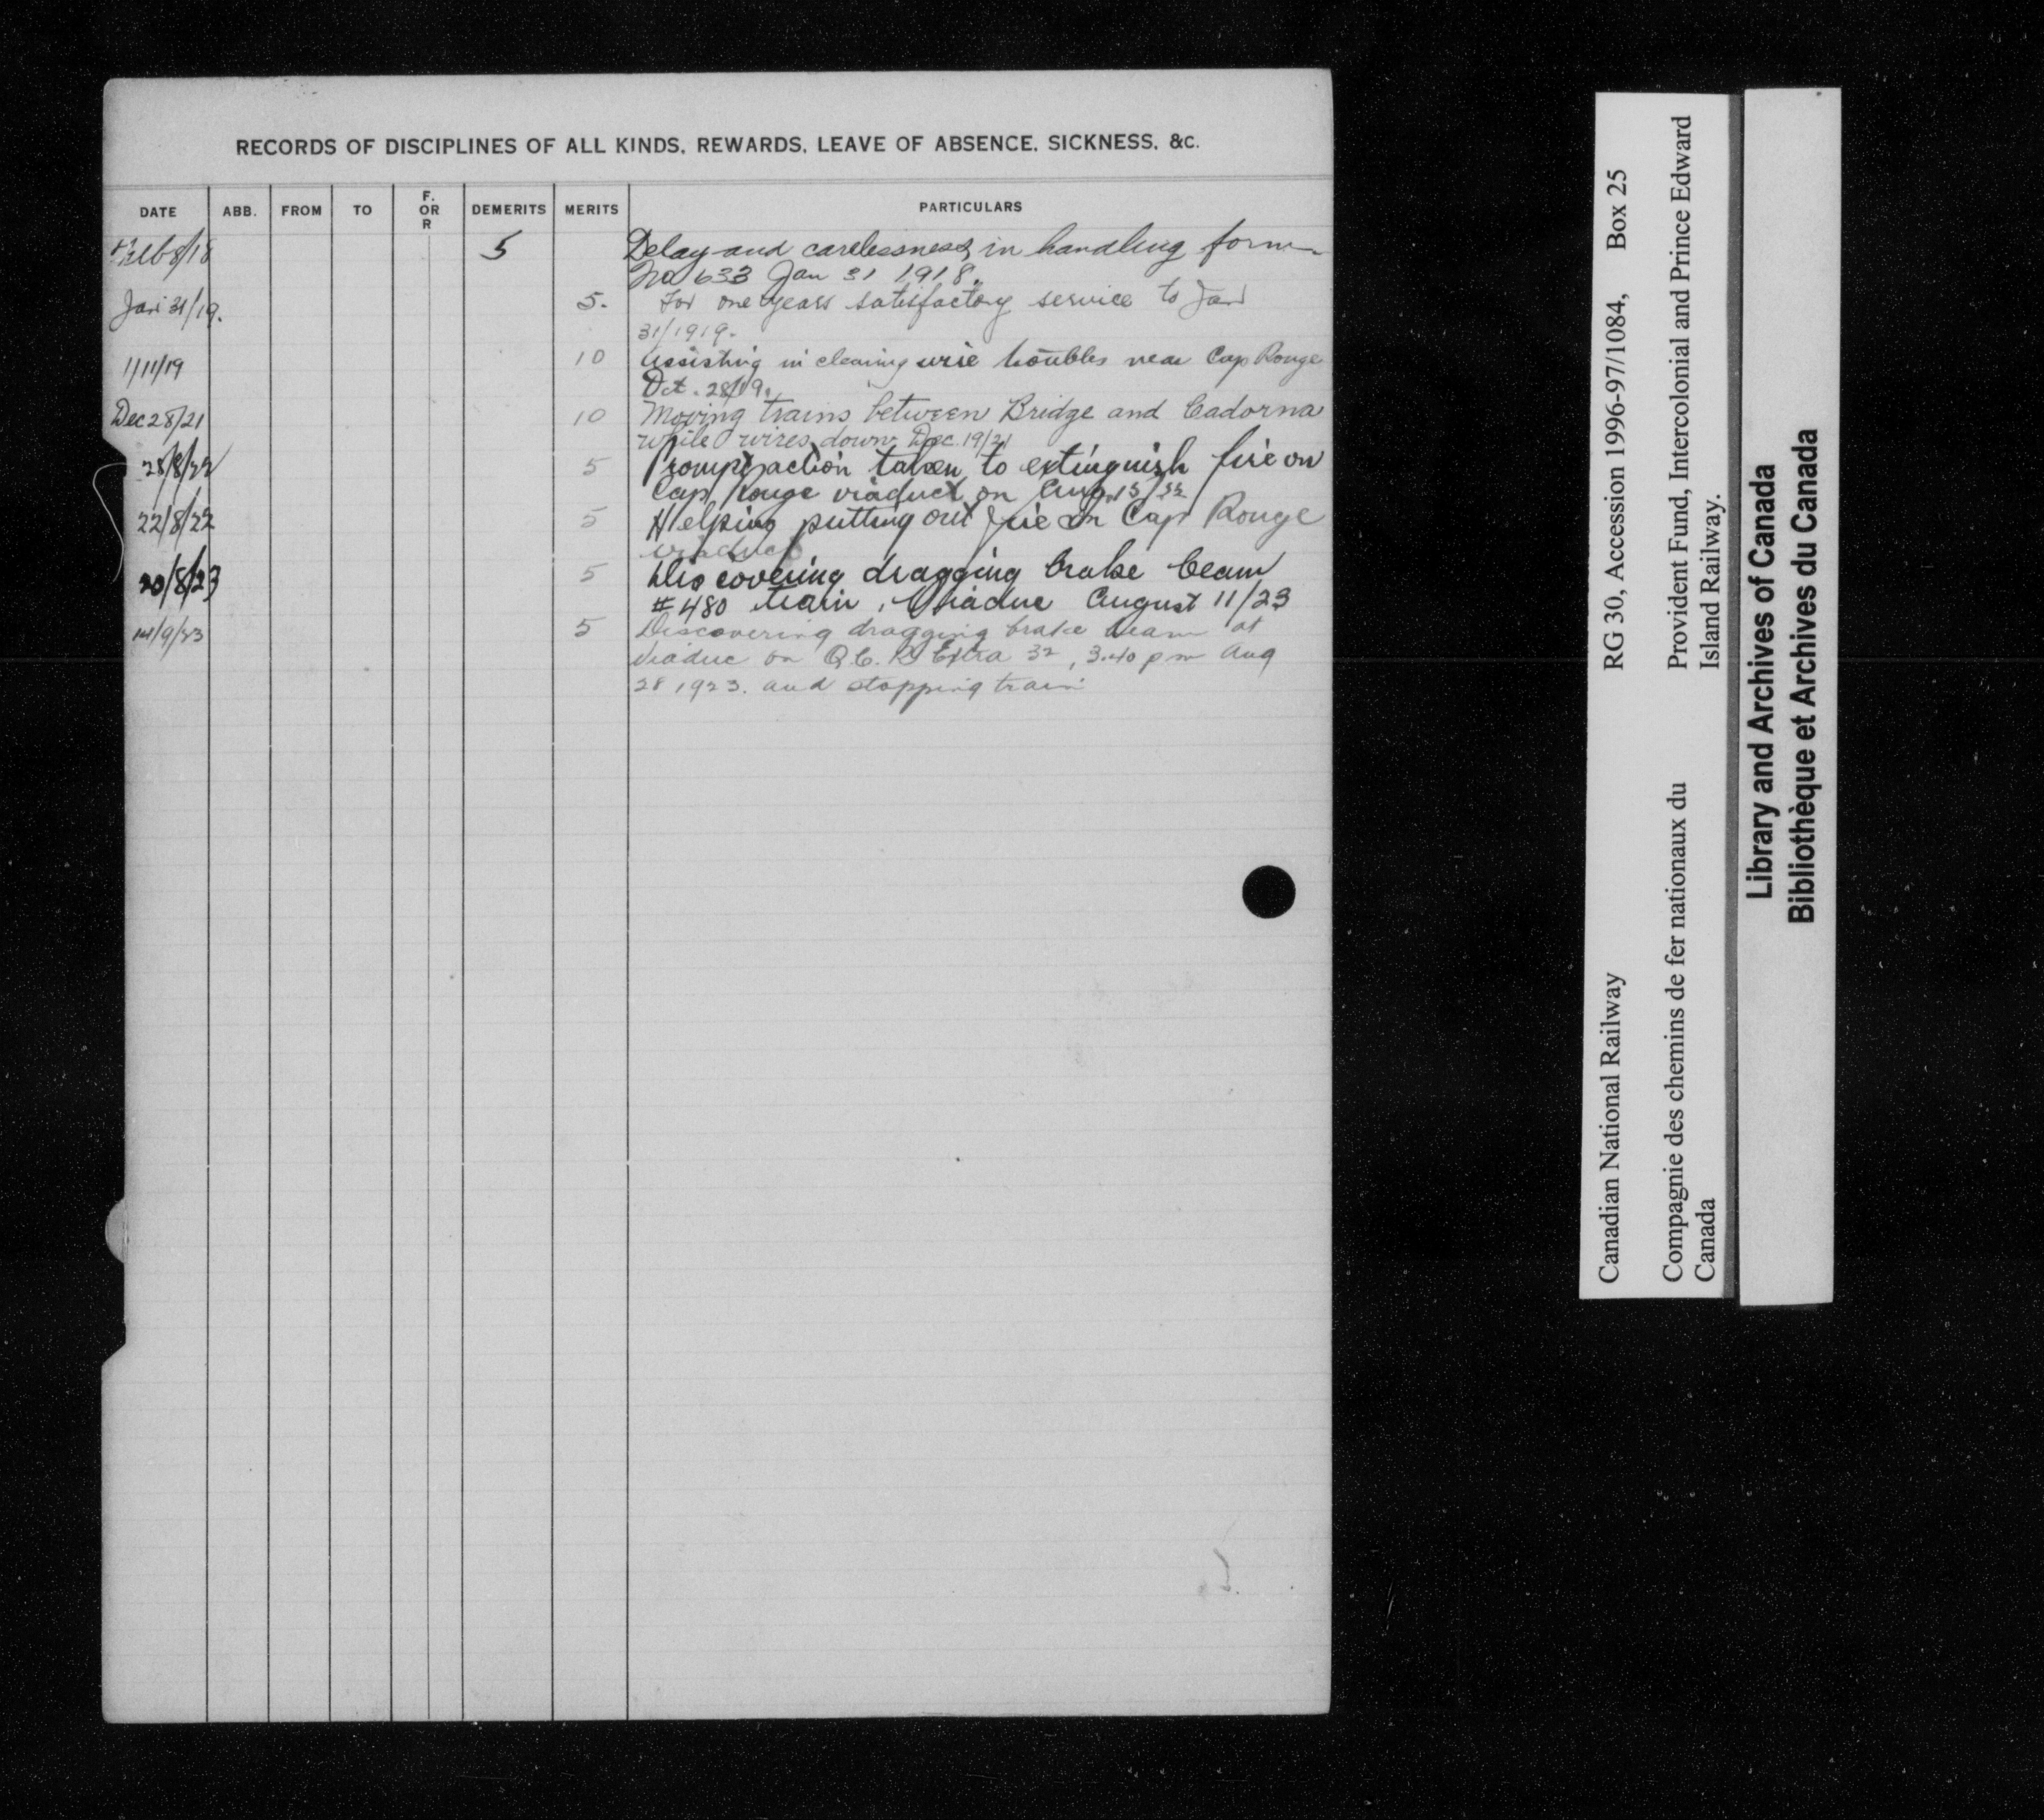 RECORDS OF DISCIPLINES OF ALL KINDS, REWARDS, LEAVE OF ABSENCE, SICKNESS, &C.
DATE ABB. FROM TO F. OR R DEMERITS MERITS PARTICULARS
Feb 8/18 5 Delay and carelessness in handling form
No 633 Jan 31 1918.
Jan 31/19. 5. For one years satisfactory service to Jan
31/1919.
1/11/19 10 Assisting in clearing wire troubles near Cap Rouge
Oct. 28/19.
Dec 28/21 10 Moving trains between Bridge and Cadorna
while wires down Dec. 19/21
28/8/22 5 Prompt action taken to extinguish fire on
Cap Rouge viaduct on Aug. 15/22
22/8/22 5 Helping putting out fire on Cap Rouge
viaduct
20/8/23 5 Discovering dragging brake beam
#480 train, Viaduc August 11/23
14/9/23 5 Discovering dragging brake beam at
Viaduc on Q.C. Ry Extra 32, 3.40 pm Aug
28 1923. and stopping train
Canadian National Railway RG 30, Accession 1996-97/1084, Box 25
Compagnie des chemins de fer nationaux du Canada
Provident Fund, Intercolonial and Prince Edward
Island Railway.
Library and Archives of Canada
Bibliothèque et Archives du Canada